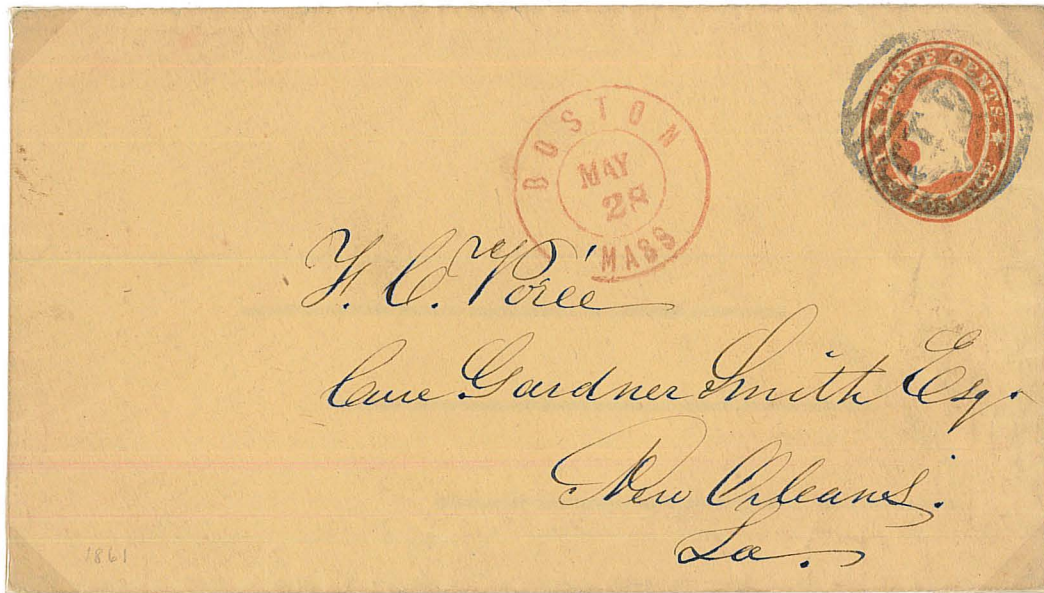 THREE CENTS
POSTAGE
BOSTON
MAY
28
MASS
F. C. Porée
Care Gardner Smith Esq.
New Orleans.
La.
1861